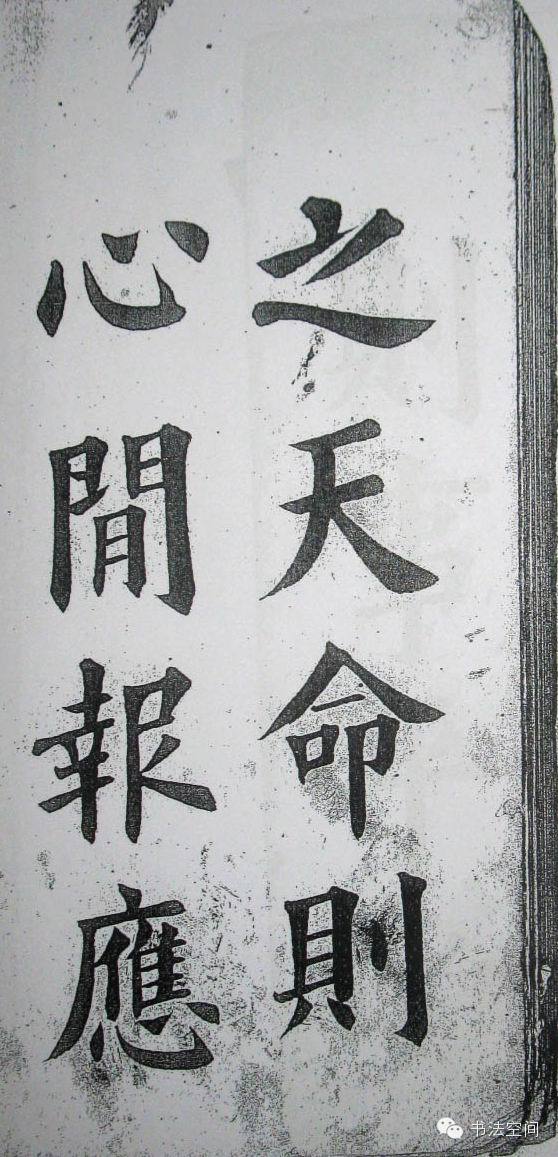 之天命則
心閒報應
书法空间